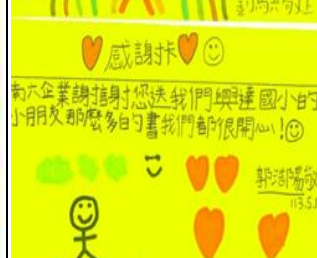 感謝卡
南六企業謝謝您送我們興達國小的
小朋友那麼多的書我們都很開心!
郭浩陽敬
113.5.